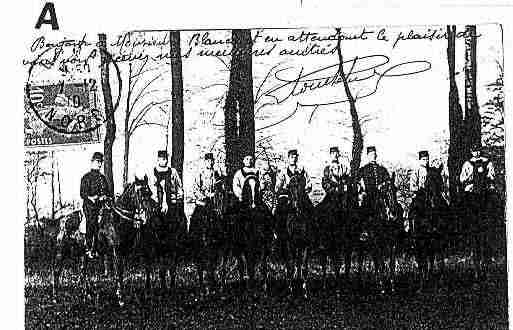 A
Bonjour à Monsieur Blanc et en attendant le plaisir de
vous voir recevez nos meilleures amitiés
7 - 12
10
NORD
POSTES